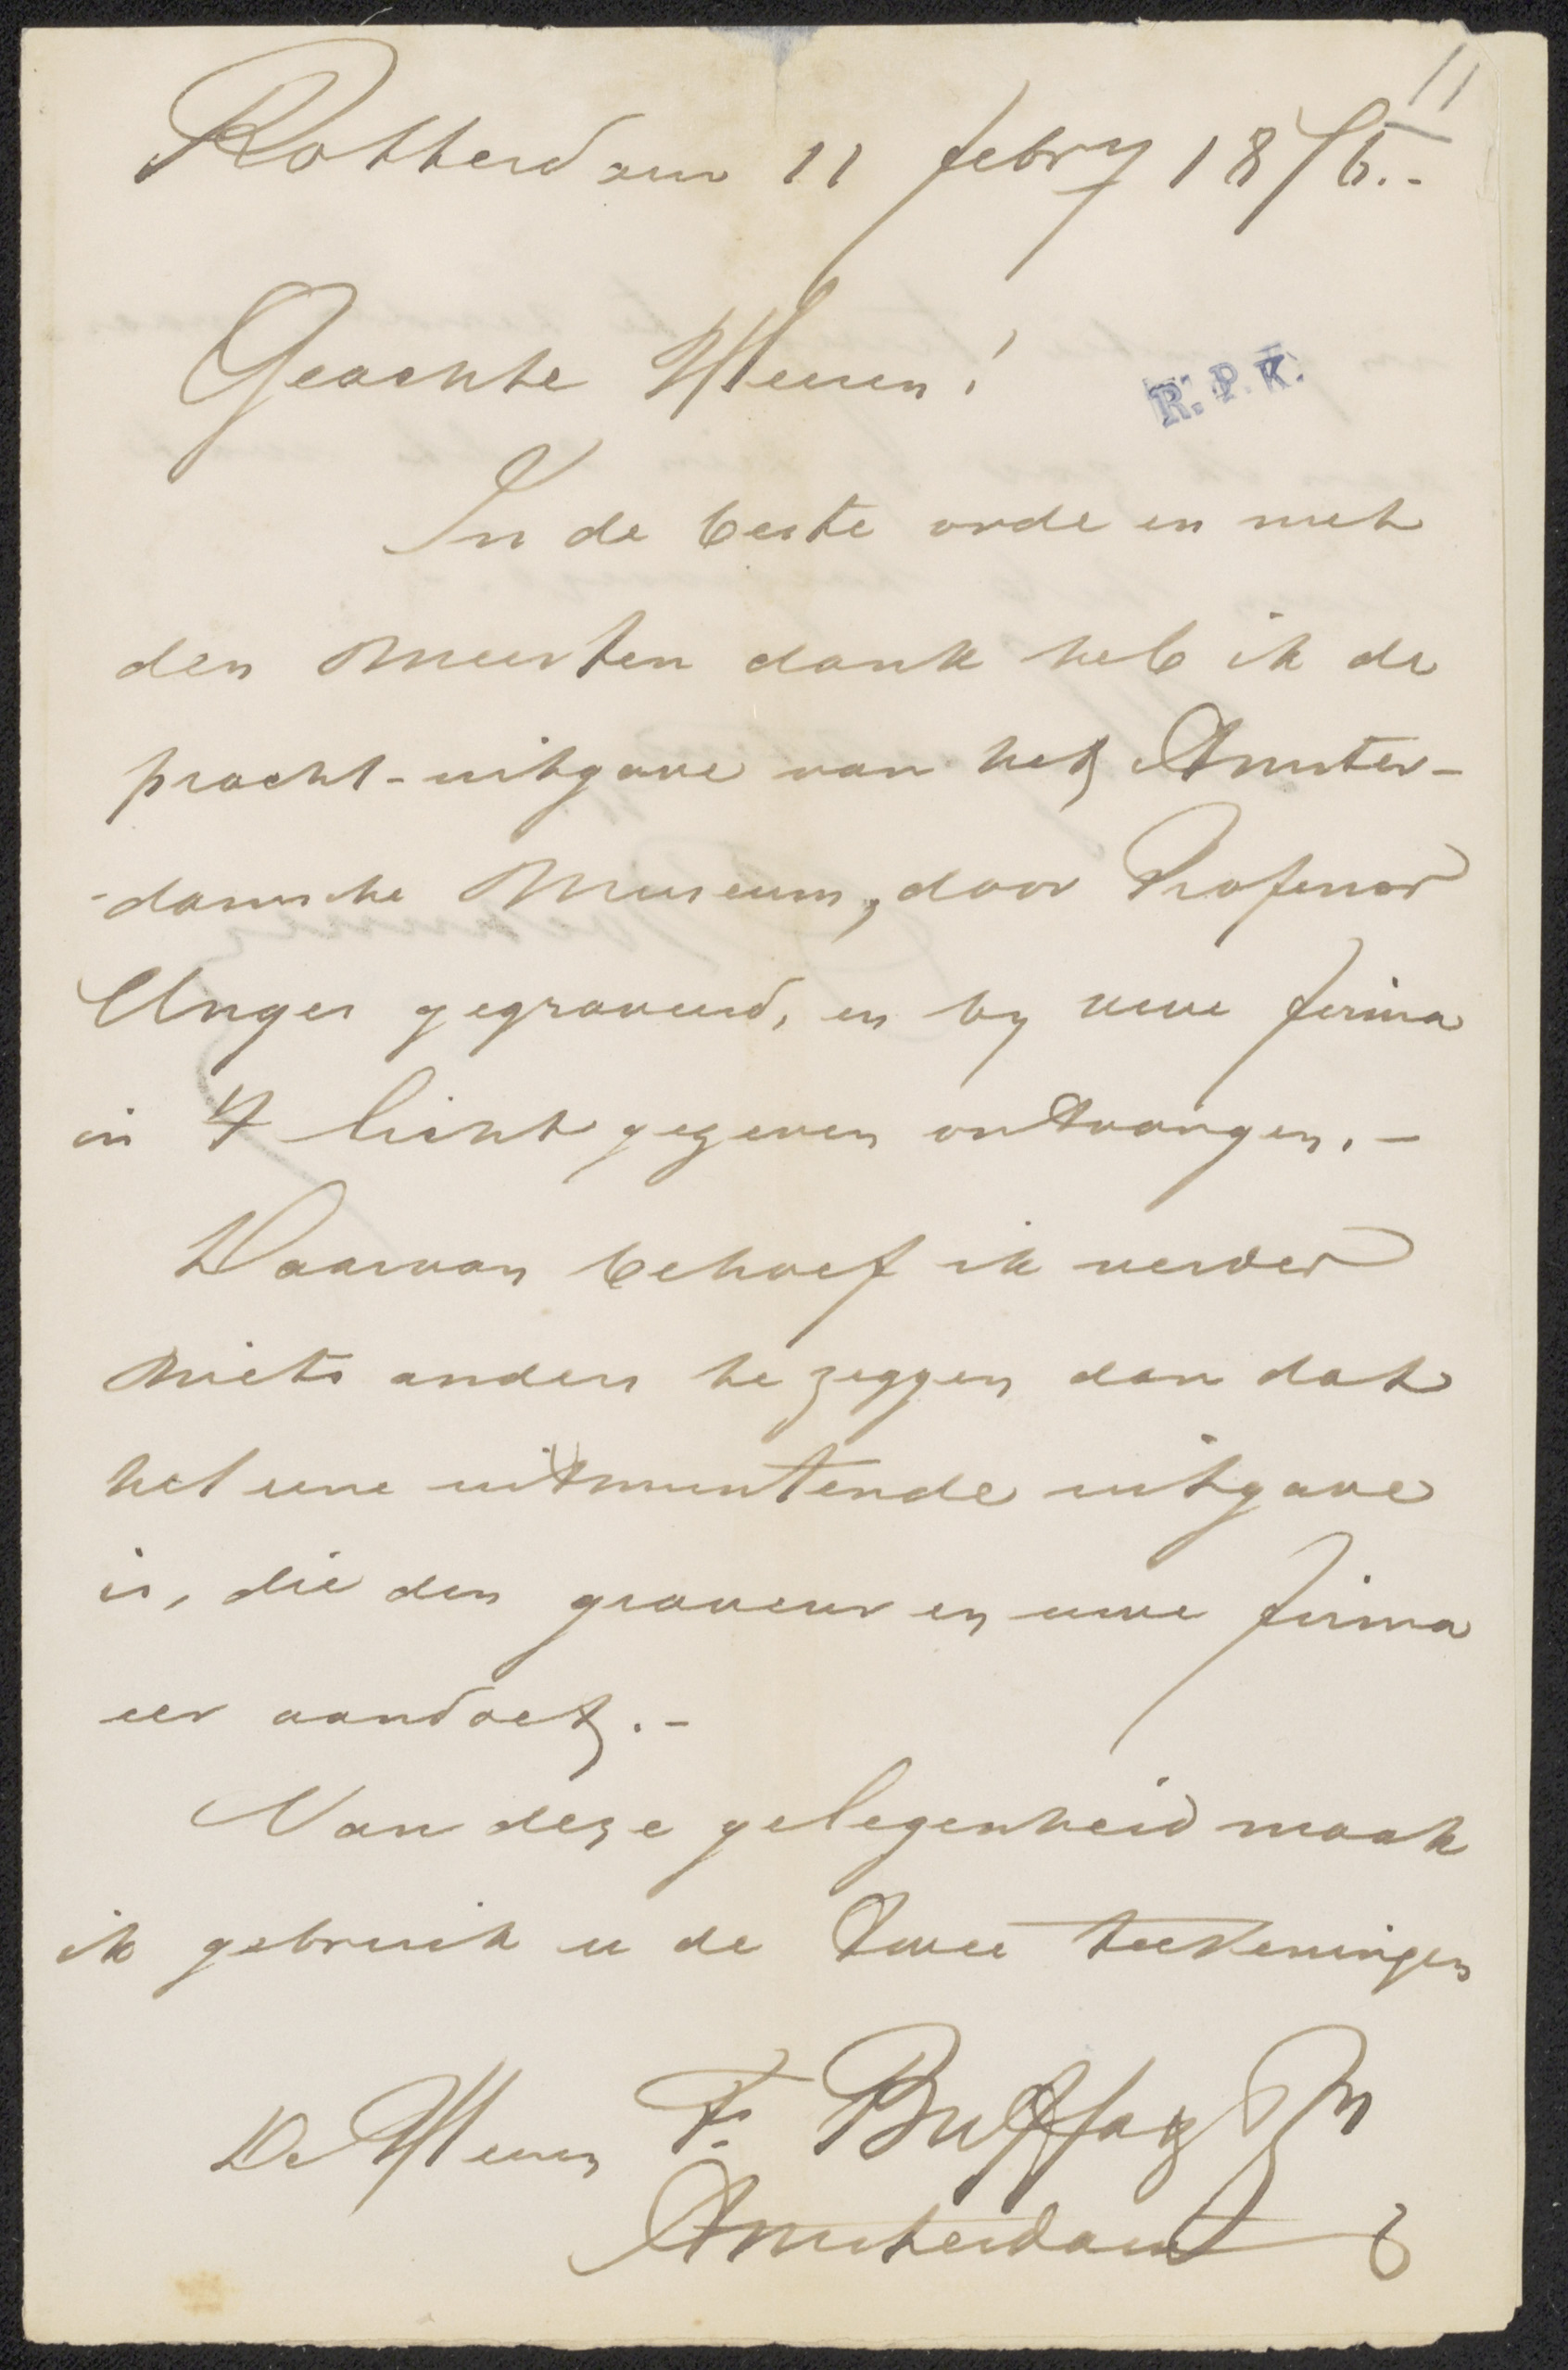 11
Rotterdam 11 febry 1876.-
Geachte Heeren!
R. P. K.
In de beste orde en met
den meesten dank heb ik de
pracht-uitgave van het Amster-
-damsche Museum, door Professor
Unger gegraveerd, en by uwe firma
in 't licht gegeven ontvangen.-
Daarvan behoef ik verder
niets anders te zeggen dan dat
het eene uitmuntende uitgave
is, die den graveur en uwe firma
eer aandoet.-
Van deze gelegenheid maak
ik gebruik u de twee teekeningen
De Heeren F. Buffa & Zn
Amsterdam